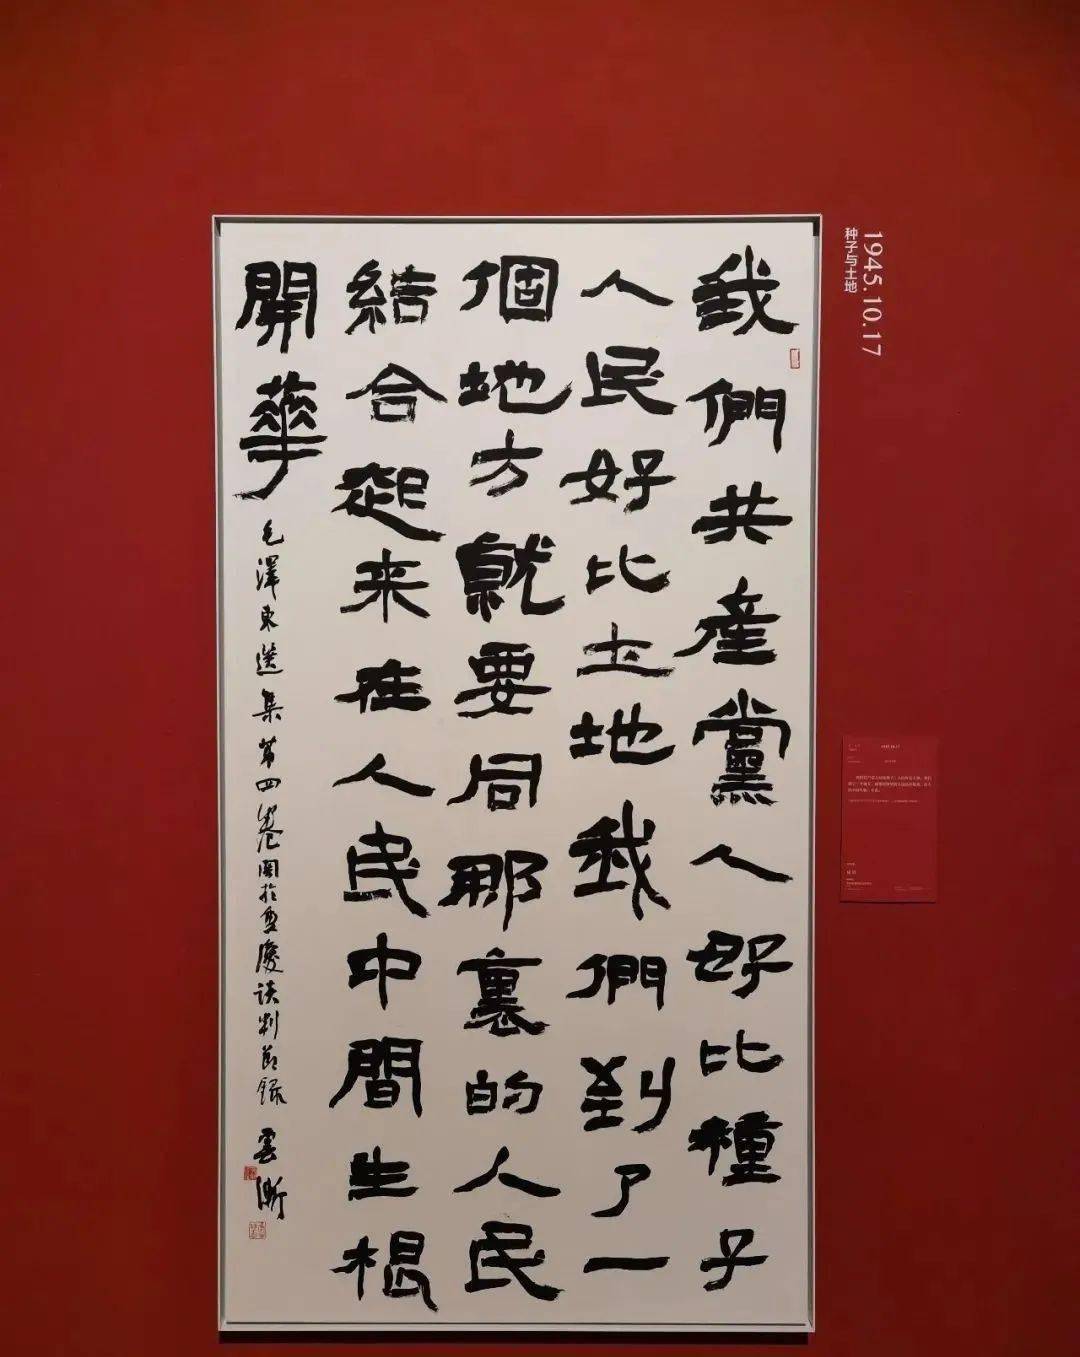 我們共產黨人好比種子
人民好比土地我們到了一
個地方就要同那裏的人民
結合起来在人民中間生根
開華
毛澤東選集第四卷関於重慶談判節錄
雲漸
1945.10.17
种子与土地